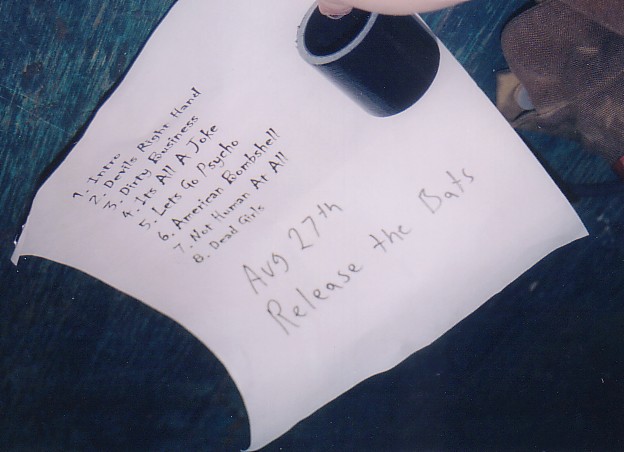 1. Intro
2. Devils Right Hand
3. Dirty Business
4. Its All A Joke
5. Lets Go Psycho
6. American Bombshell
7. Not Human At All
8. Dead Girls
Aug 27th
Release the Bats